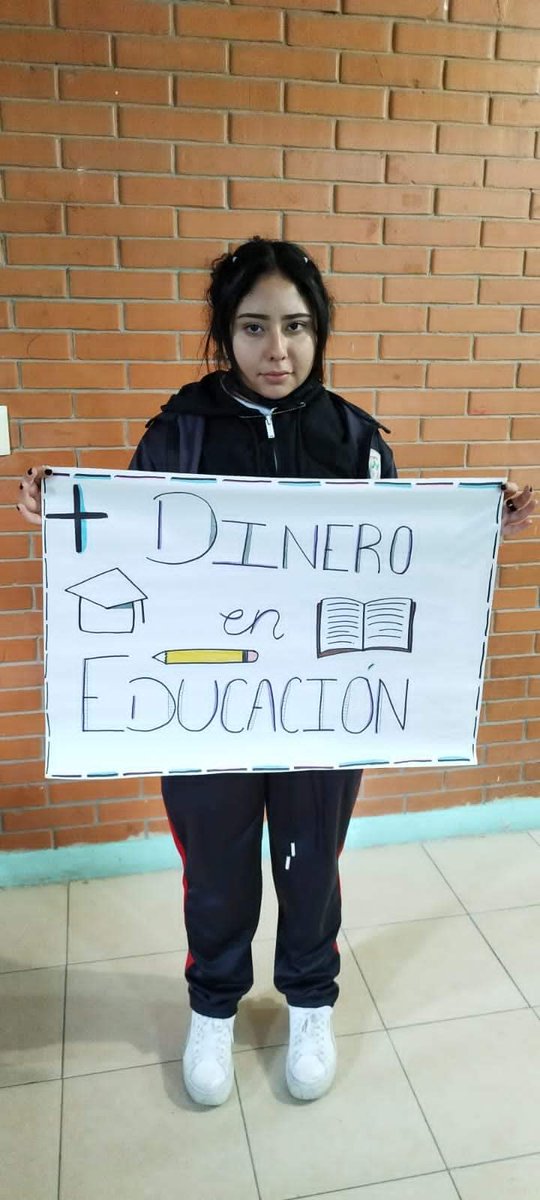 + DINERO
en
EDUCACIÓN